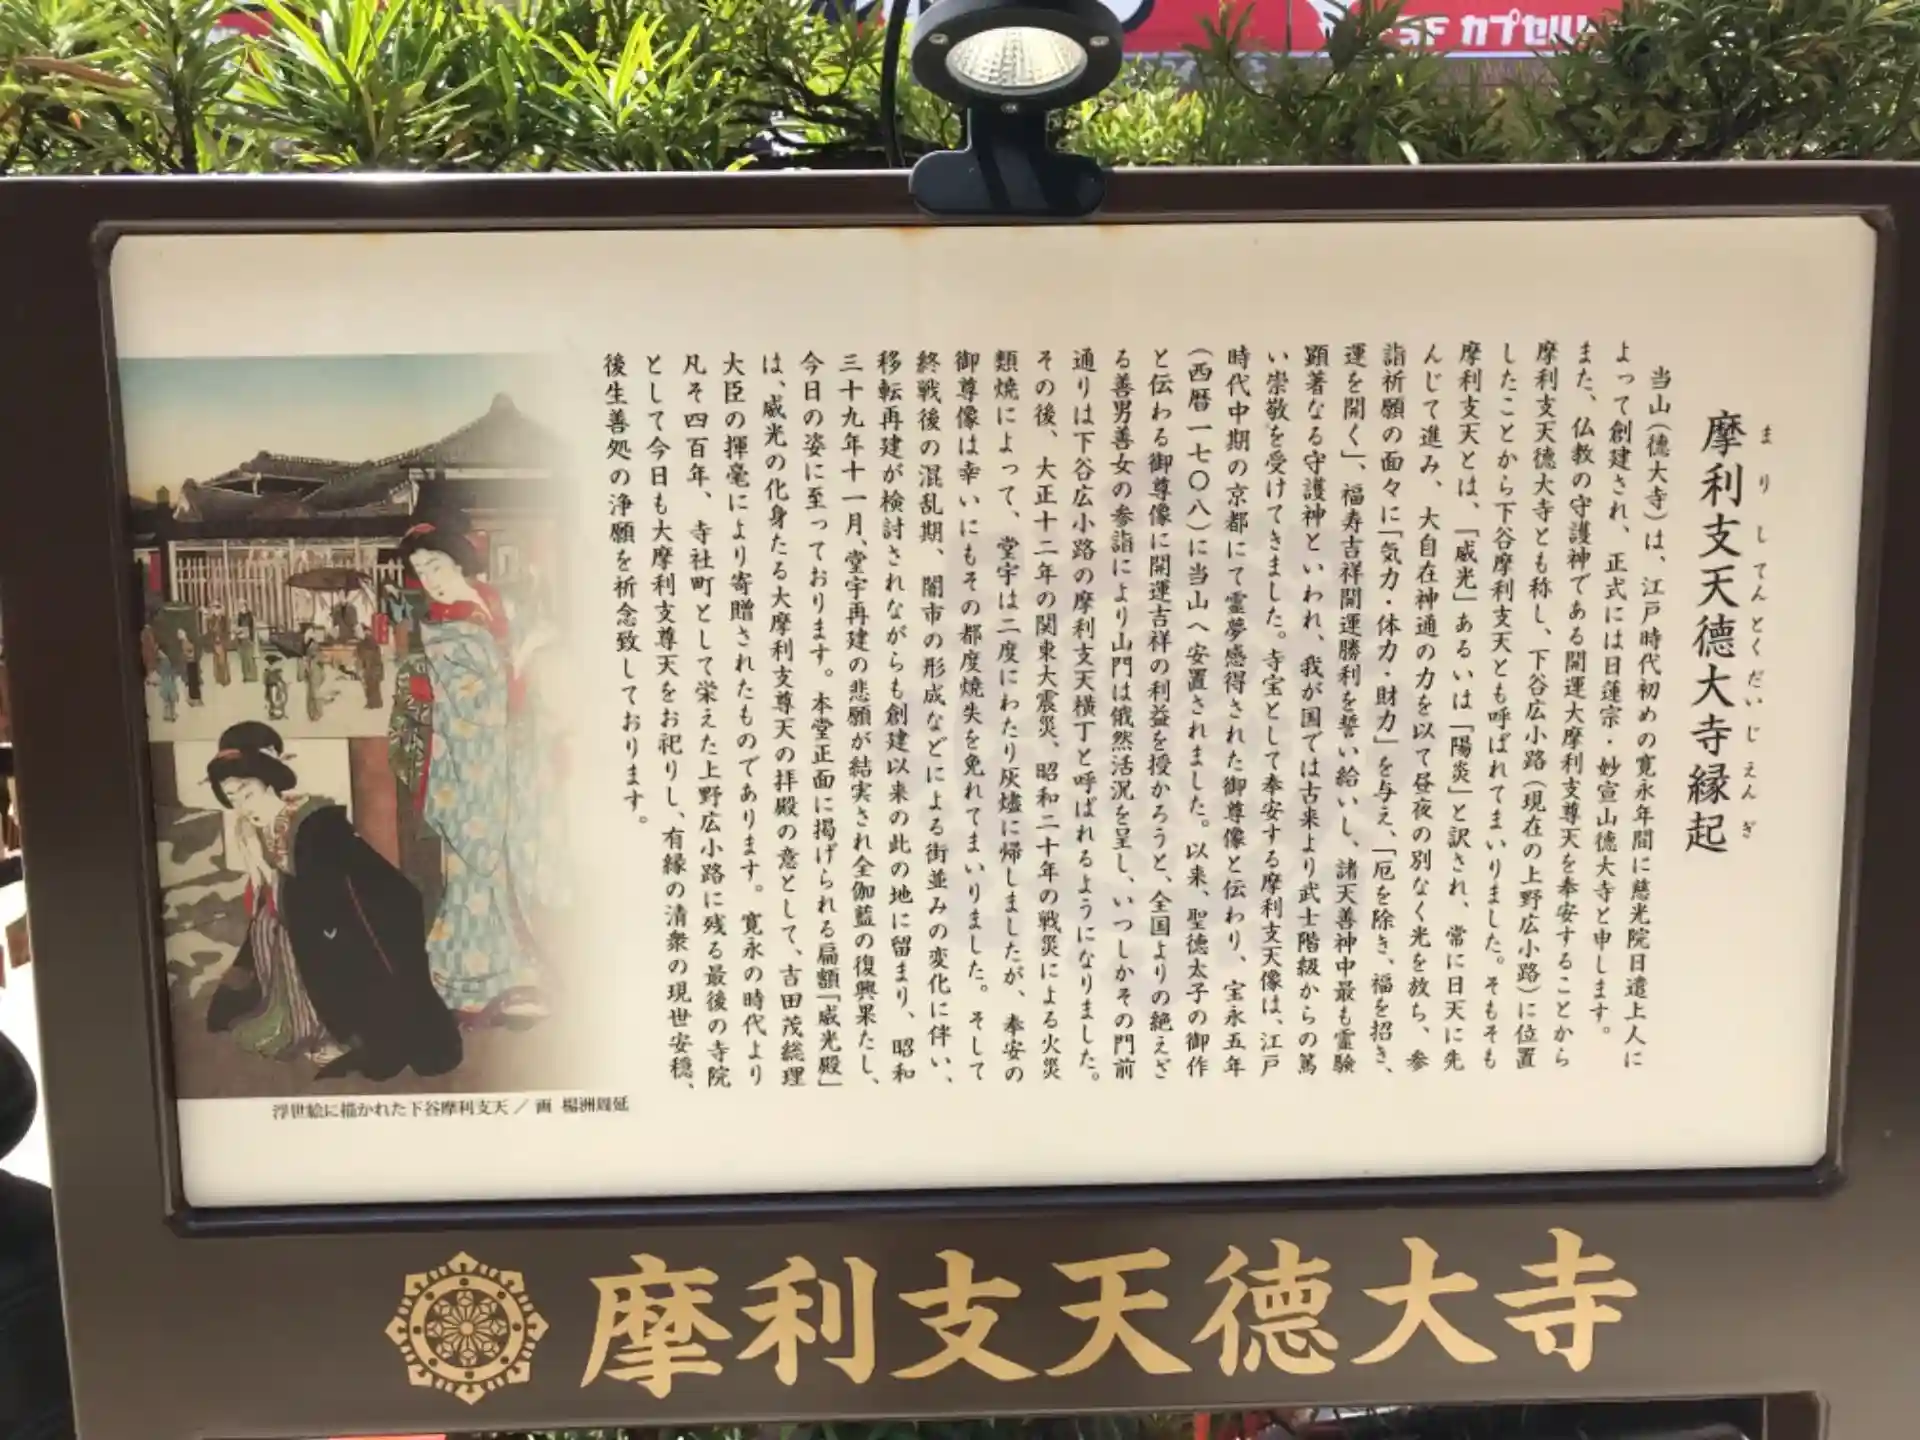 SF カプセル
摩利支天徳大寺縁起
まりしてんとくだいじえんぎ
当山（徳大寺）は、江戸時代初めの寛永年間に慈光院日遣上人に
よって創建され、正式には日蓮宗・妙宣山徳大寺と申します。
また、仏教の守護神である開運大摩利支尊天を奉安することから
摩利支天徳大寺とも称し、下谷広小路（現在の上野広小路）に位置
したことから下谷摩利支天とも呼ばれてまいりました。そもそも
摩利支天とは、「威光」あるいは「陽炎」と訳され、常に日天に先
んじて進み、大自在神通の力を以て昼夜の別なく光を放ち、参
詣祈願の面々に「気力・体力・財力」を与え、「厄を除き、福を招き、
運を開く」、福寿吉祥開運勝利を誓い給いし、諸天善神中最も霊験
顕著なる守護神といわれ、我が国では古来より武士階級からの篤
い崇敬を受けてきました。寺宝として奉安する摩利支天像は、江戸
時代中期の京都にて霊夢感得された御尊像と伝わり、宝永五年
（西暦一七〇八）に当山へ安置されました。以来、聖徳太子の御作
と伝わる御尊像に開運吉祥の利益を授かろうと、全国よりの絶えざ
る善男善女の参詣により山門は俄然活況を呈し、いつしかその門前
通りは下谷広小路の摩利支天横丁と呼ばれるようになりました。
その後、大正十二年の関東大震災、昭和二十年の戦災による火災
類焼によって、堂宇は二度にわたり灰燼に帰しましたが、奉安の
御尊像は幸いにもその都度焼失を免れてまいりました。そして
終戦後の混乱期、闇市の形成などによる街並みの変化に伴い、
移転再建が検討されながらも創建以来の此の地に留まり、昭和
三十九年十一月、堂宇再建の悲願が結実され全伽藍の復興果たし、
今日の姿に至っております。本堂正面に掲げられる扁額「威光殿」
は、威光の化身たる大摩利支尊天の拝殿の意として、吉田茂総理
大臣の揮毫により寄贈されたものであります。寛永の時代より
凡そ四百年、寺社町として栄えた上野広小路に残る最後の寺院
として今日も大摩利支尊天をお祀りし、有縁の清衆の現世安穏、
後生善処の浄願を祈念致しております。
浮世絵に描かれた下谷摩利支天／画 楊洲周延
摩利支天徳大寺